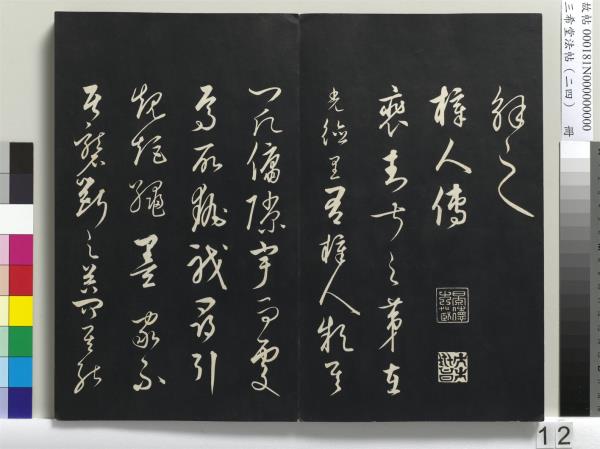 解之
梓人傳
裴封叔之第在
光德里有梓人款其
門願傭隙宇而處
焉所職尋引
規矩繩墨家不
居礱斲之器問其能
故帖 000181N000000000
三希堂法帖(二四) 冊
1 2